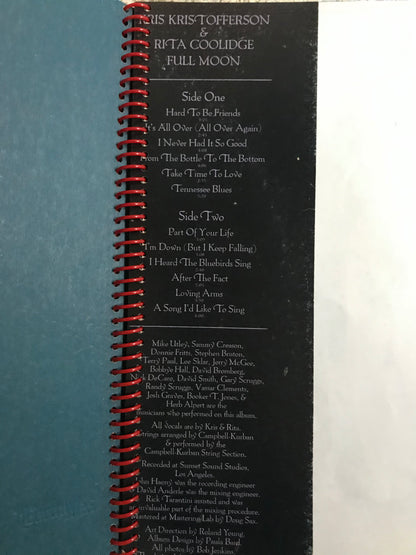 KRIS KRISTOFFERSON
&
RITA COOLIDGE
FULL MOON
Side One
Hard To Be Friends
It's All Over (All Over Again)
I Never Had It So Good
From The Bottle To The Bottom
Take Time To Love
Tennessee Blues
Side Two
Part Of Your Life
I'm Down (But I Keep Falling)
I Heard The Bluebirds Sing
After The Fact
Loving Arms
A Song I'd Like To Sing
Mike Utley, Sammy Creason,
Donnie Fritts, Stephen Bruton,
Terry Paul, Lee Sklar, Jerry McGee,
Bobbye Hall, David Bromberg,
Nick DeCaro, David Smith, Gary Scruggs,
Randy Scruggs, Vassar Clements,
Josh Graves, Booker T. Jones, &
Herb Alpert are the
musicians who performed on this album.
All vocals are by Kris & Rita.
Strings arranged by Campbell-Kurban
& performed by the
Campbell-Kurban String Section.
Recorded at Sunset Sound Studios,
Los Angeles.
John Haeny was the recording engineer
David Anderle was the mixing engineer.
Rick Tarantini assisted and was
invaluable part of the mixing procedure.
Mastered at Mastering Lab by Doug Sax.
Art Direction by Roland Young
Album Design by Paula Bisgl
All photos by Bob Jenkins